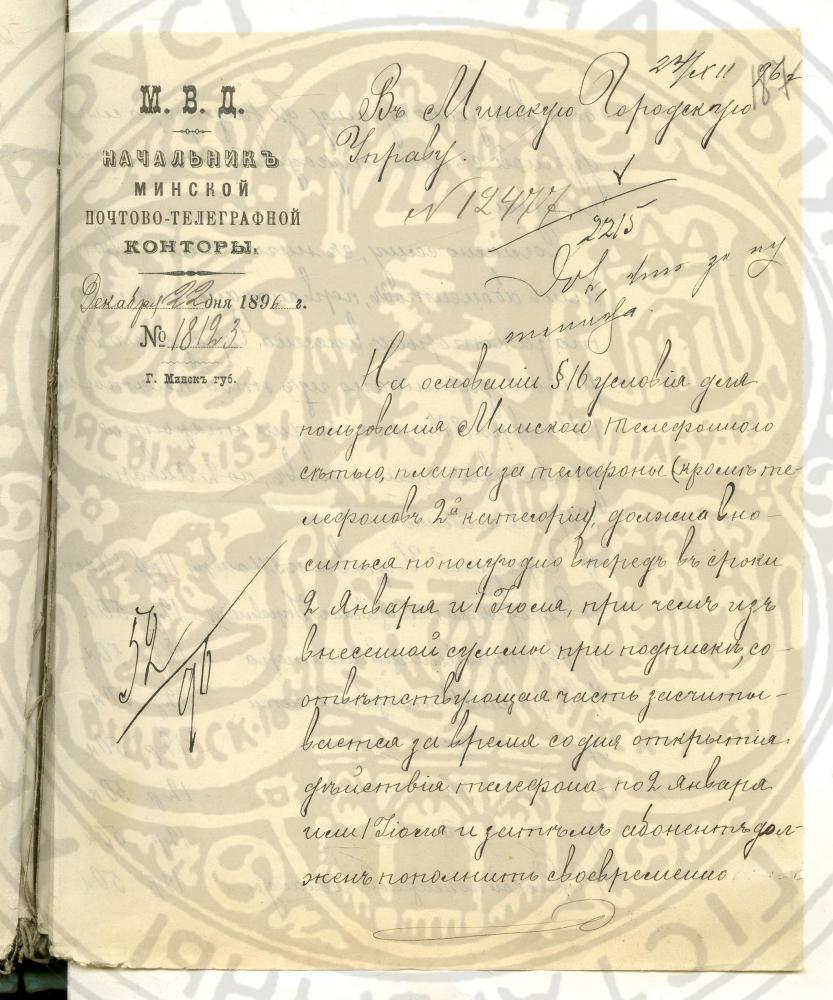 М. В. Д.
НАЧАЛЬНИКЪ
МИНСКОЙ
ПОЧТОВО-ТЕЛЕГРАФНОЙ
КОНТОРЫ,
Декабря 22 дня 1896 г.
№ 18123
Г. Минскъ губ.
187
Въ Минскую Городскую
Управу.
N 12477
2215
На основаніи § 16 условія для
пользованія Минскою телефонною
сѣтью, плата за телефоны (кромѣ те-
лефоновъ 2й категоріи), должна вно-
ситься по полугодно впередъ въ сроки
2 Января и 1 Іюля, при чемъ изъ
внесенной суммы при подпискѣ, со-
отвѣтствующая часть засчиты-
вается за время со дня открытія
дѣйствія телефона по 2 Января
или 1 Іюля и затѣмъ абонентъ дол-
женъ пополнить своевременно
52/96